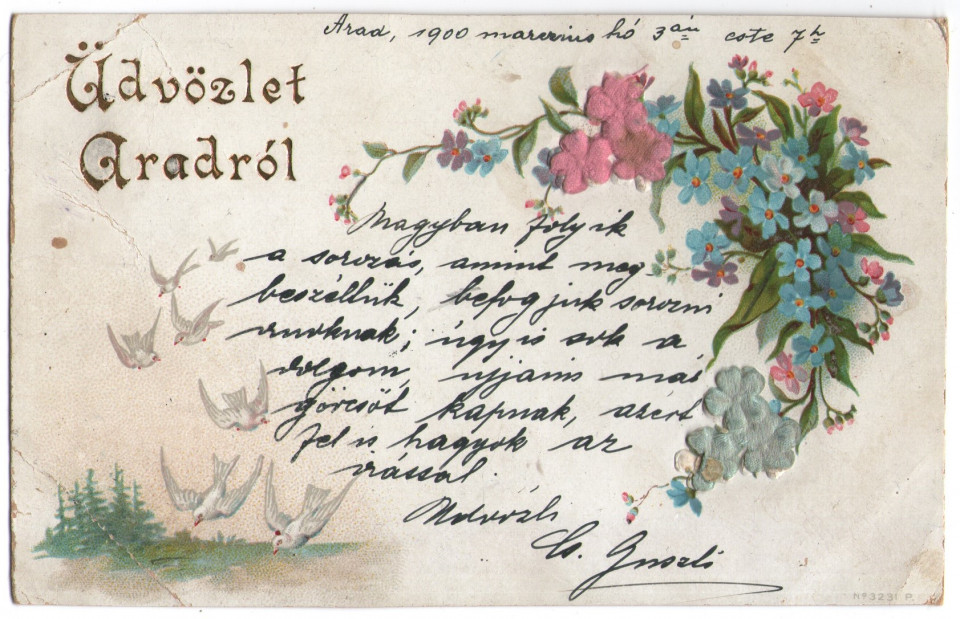 Arad, 1900 marczius hó 3án este 7h
Üdvözlet
Aradról
Nagyban folyik
a sorozás, amint meg
beszéltük, befogjuk sorozni
úgyis sok a
dolgom, ujjaim már
görcsöt kapnak, azért
fel is hagyok az
irással.
Üdvözli
Cs. Guszti
No 3231 P.